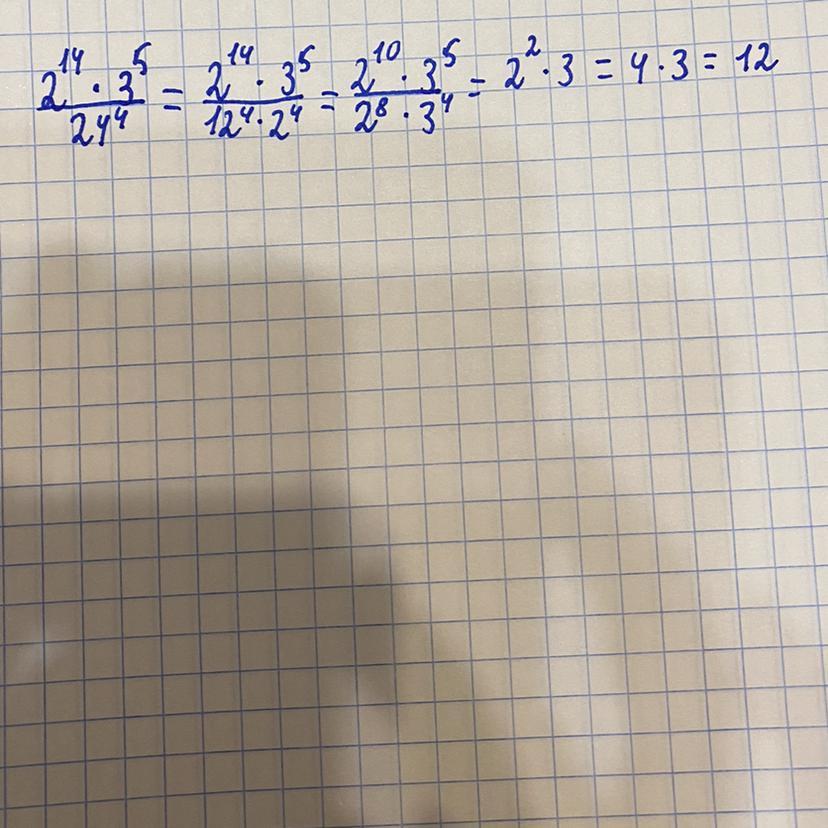 \frac{2^{14} \cdot 3^5}{24^4} = \frac{2^{14} \cdot 3^5}{12^4 \cdot 2^4} = \frac{2^{10} \cdot 3^5}{2^8 \cdot 3^4} = 2^2 \cdot 3 = 4 \cdot 3 = 12